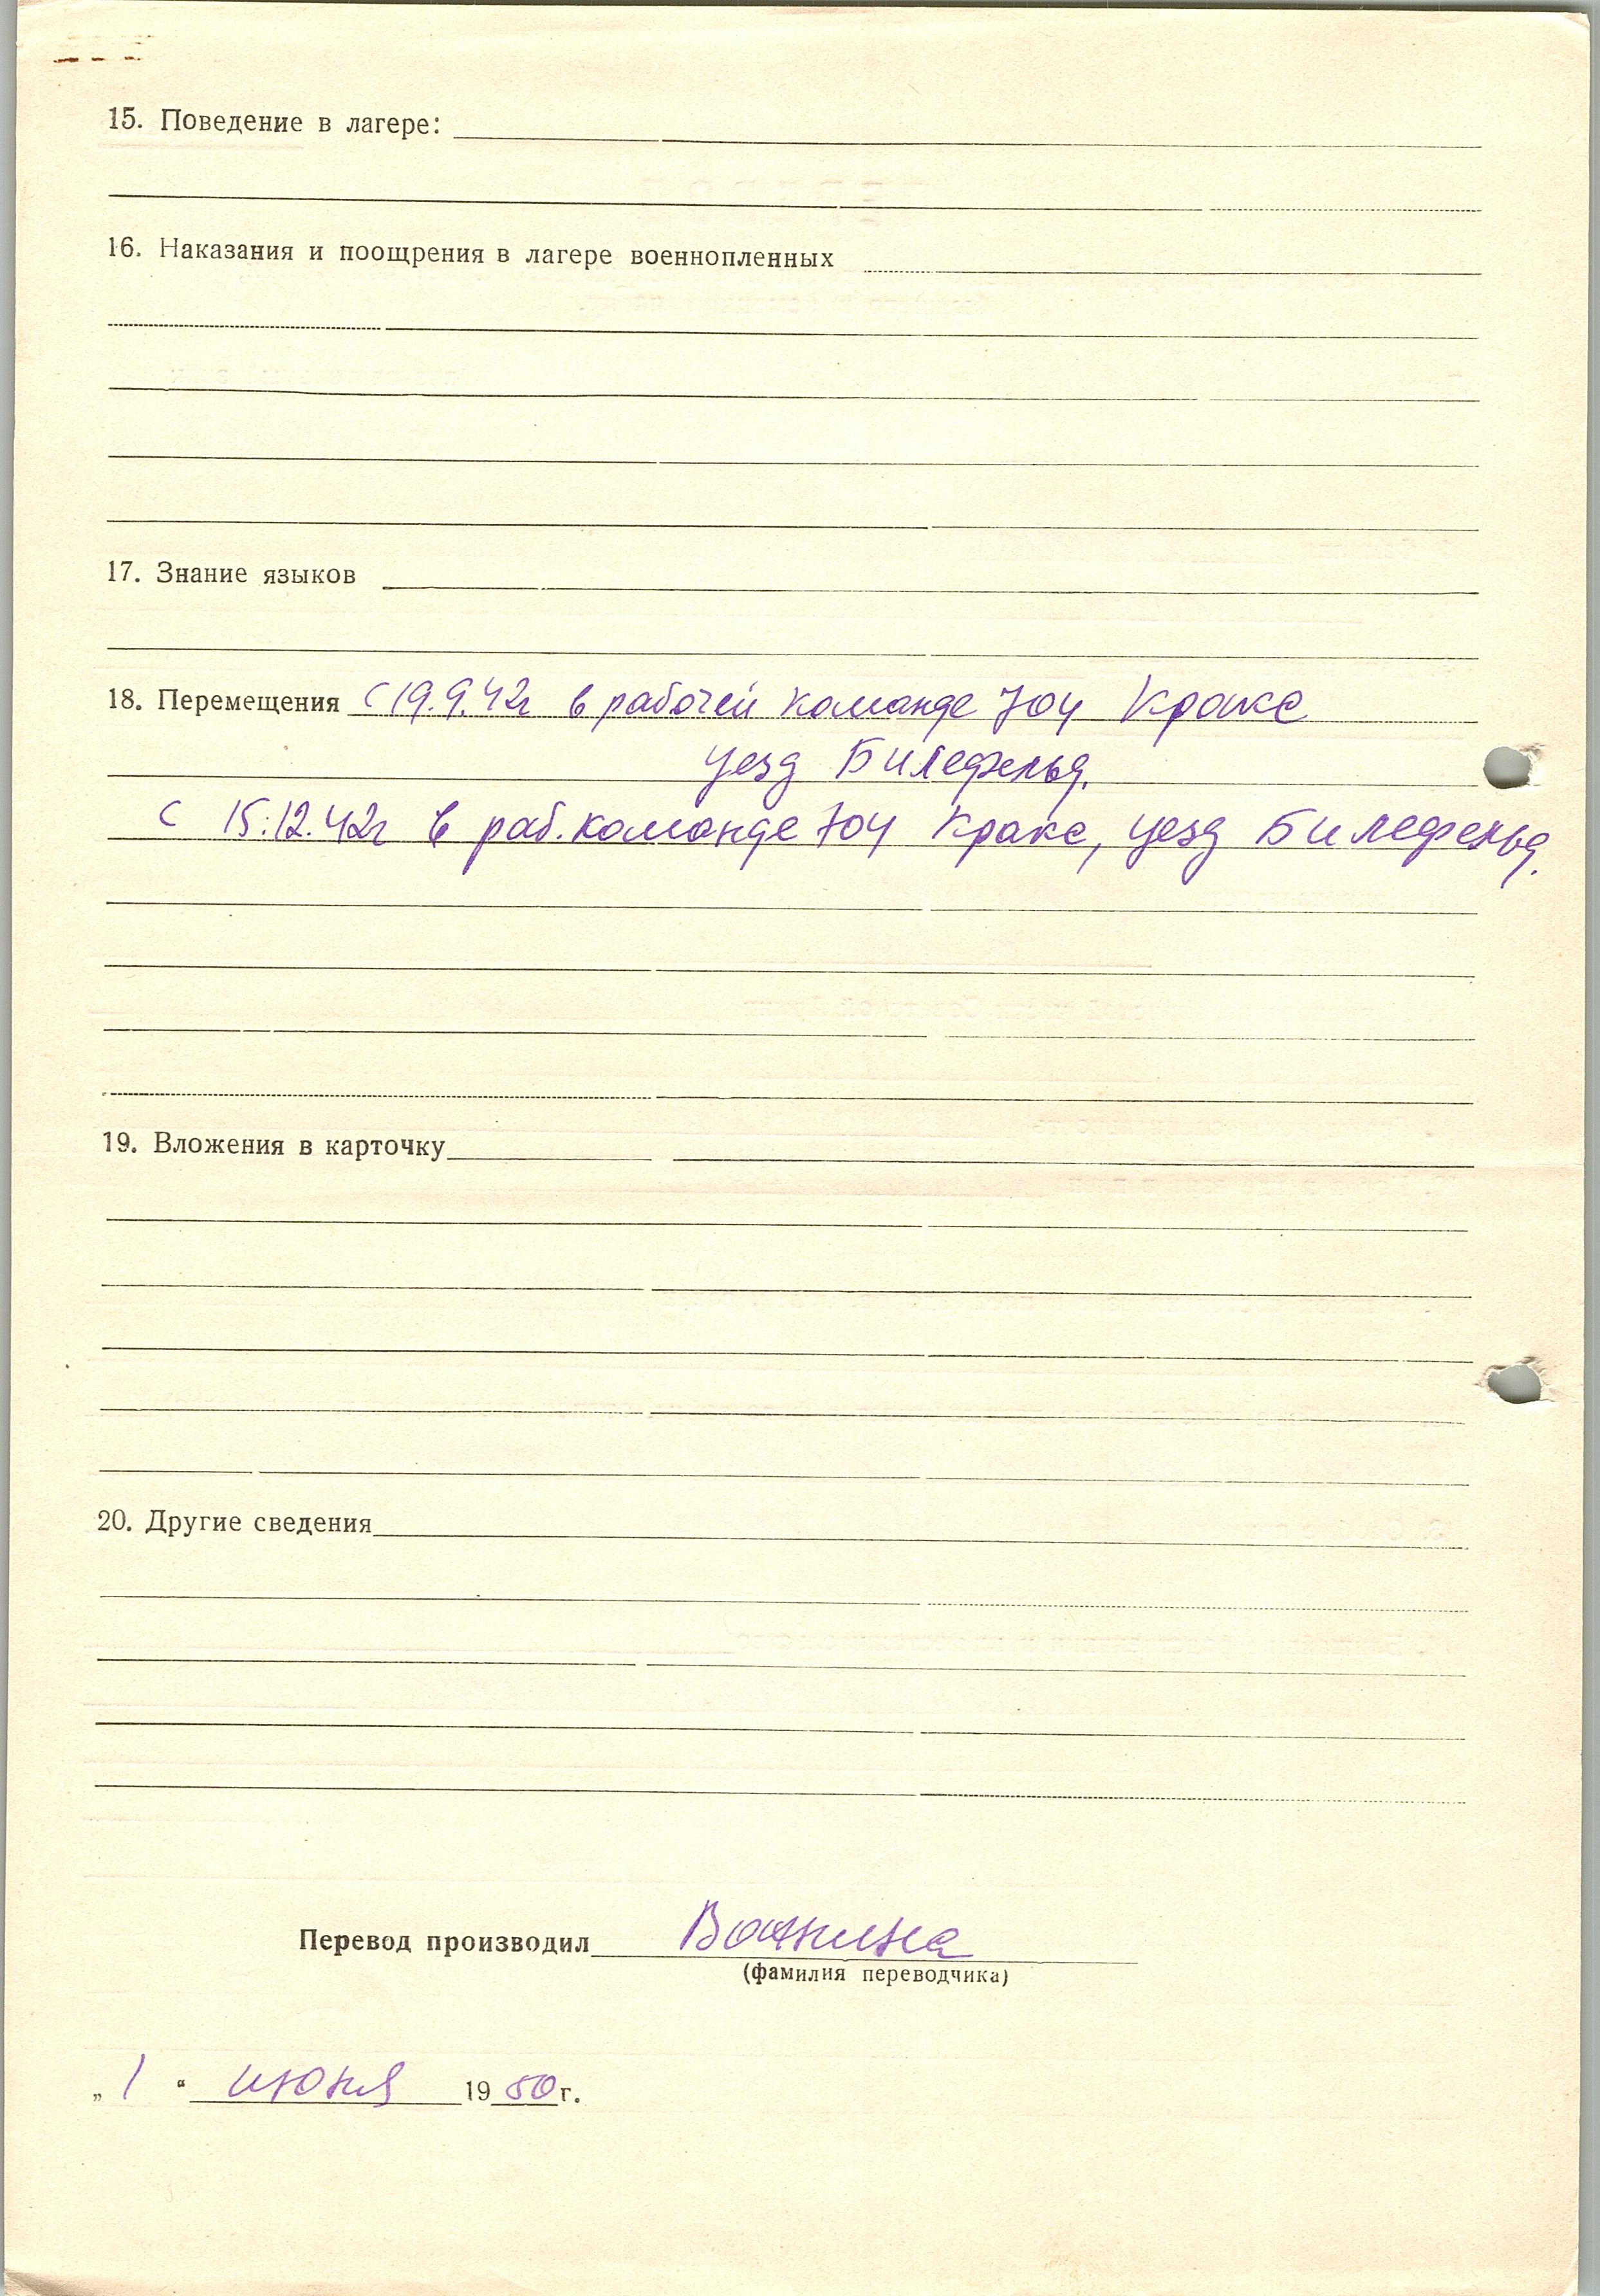 15. Поведение в лагере:
16. Наказания и поощрения в лагере военнопленных
17. Знание языков
18. Перемещения с 19.9.42г в рабочей команде 704 Кракс
уезд Билефельд.
с 15.12.42г в раб. команде 704 Кракс, уезд Билефельд.
19. Вложения в карточку
20. Другие сведения
Перевод производил
(фамилия переводчика)
„ 1 “ июня 1950г.